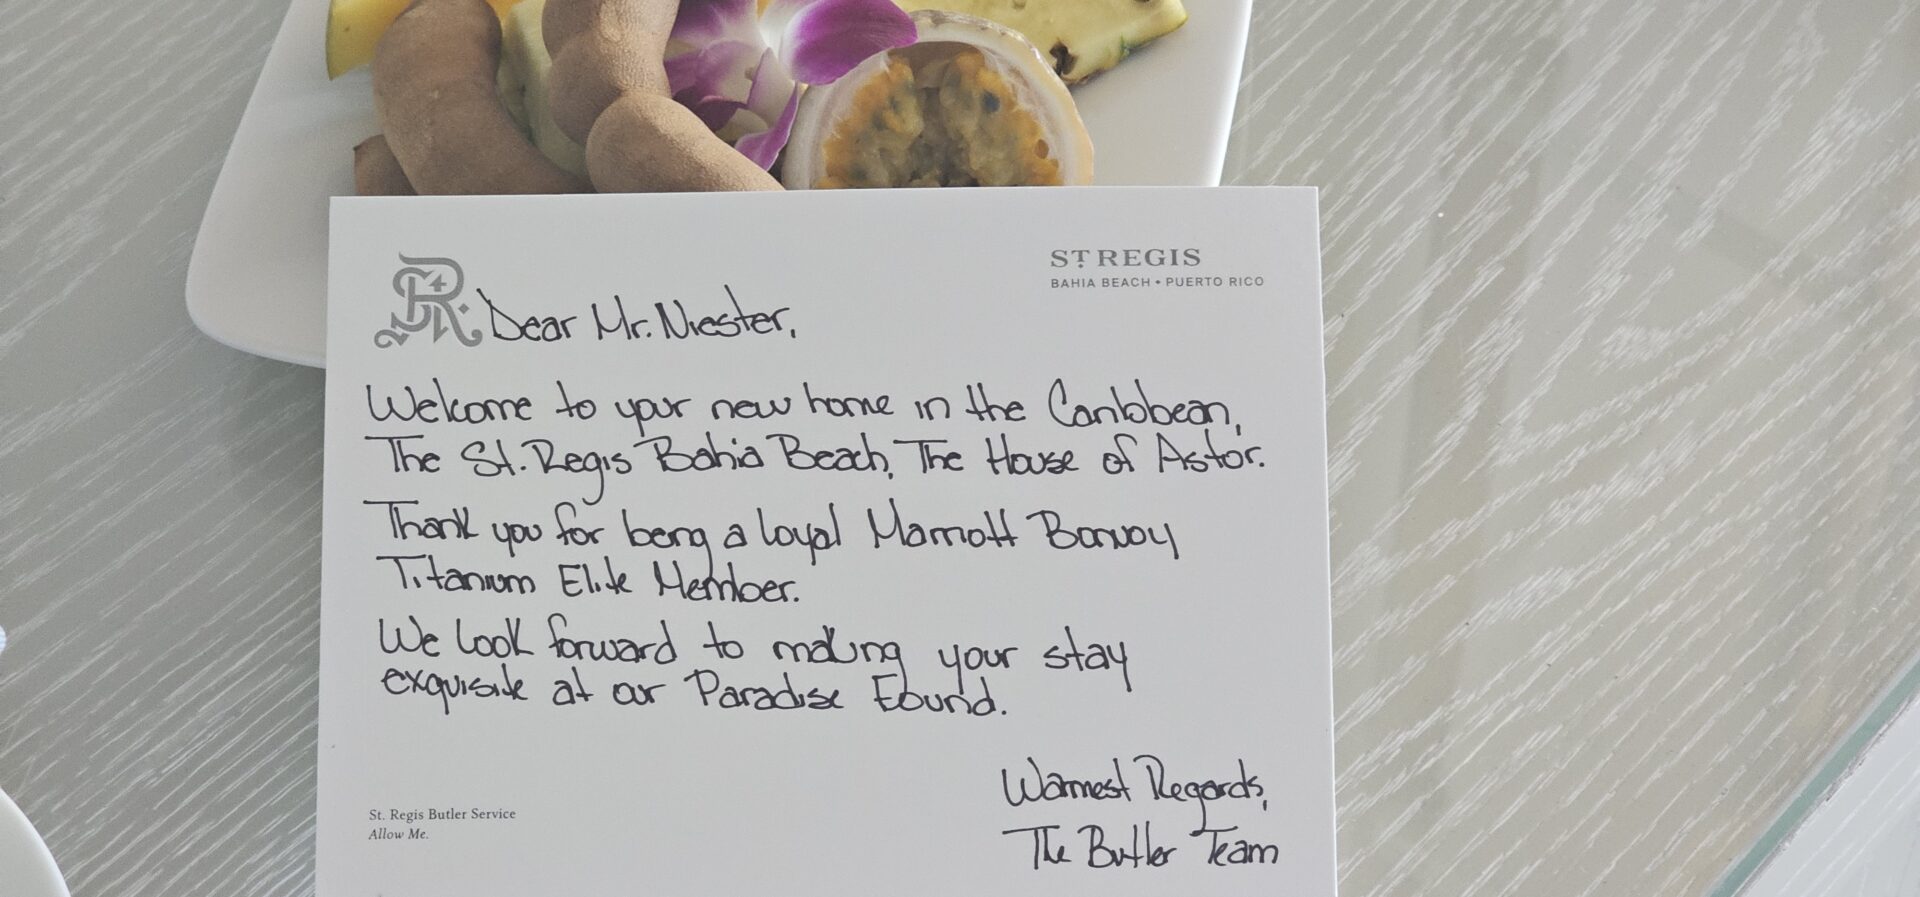 ST REGIS
BAHIA BEACH • PUERTO RICO
Dear Mr. Niester,
Welcome to your new home in the Caribbean,
The St. Regis Bahia Beach, The House of Astor.
Thank you for being a loyal Marriott Bonvoy
Titanium Elite Member.
We look forward to making your stay
exquisite at our Paradise Found.
Warmest Regards,
The Butler Team
St. Regis Butler Service
Allow Me.